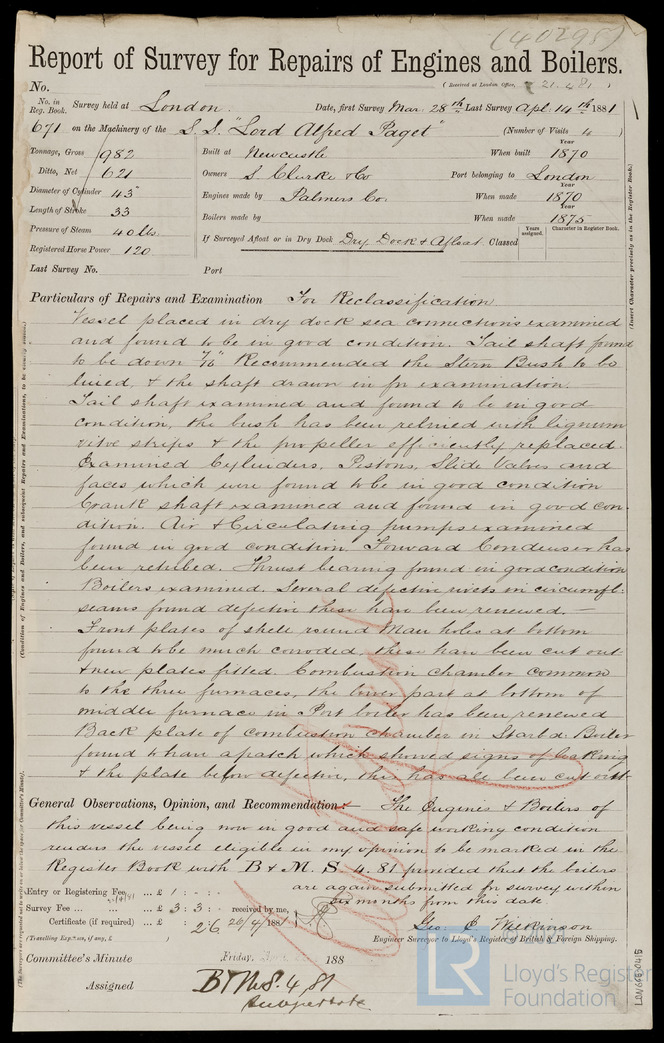 (40298)
Report of Survey for Repairs of Engines and Boilers.
(Received at London Office, 21.4.81)
No.
No. in Reg. Book. Survey held at London. Date, first Survey Mar: 28th Last Survey Apl: 14th 1881
671 on the Machinery of the S.S. "Lord Alfred Paget" (Number of Visits 4)
Tonnage, Gross 982 Built at Newcastle When built Year 1870
Ditto, Net 621 Owners S. Clarke & Co Port belonging to London
Diameter of Cylinder 45 Engines made by Palmers Co. When made Year 1870
Length of Stroke 33 Boilers made by When made Year 1875
Pressure of Steam 40 lbs. If Surveyed Afloat or in Dry Dock Dry Dock & Afloat. Classed Years assigned. Character in Register Book.
Registered Horse Power 120
Last Survey No. Port
(Insert Character precisely as in the Register Book.)
Particulars of Repairs and Examination For Reclassification
Vessel placed in dry dock sea connections examined
and found to be in good condition. Tail shaft found
to be down Recommended the Stern Bush to be
lined, & the shaft drawn in for examination.
Tail shaft examined and found to be in good
condition, the bush has been relined with lignum
vitæ strips & the propeller efficiently replaced.
Examined Cylinders, Pistons, Slide Valves and
faces which were found to be in good condition
Crank shaft examined and found in good con-
dition. Air & Circulating pumps examined
found in good condition. Forward Condenser has
been retubed. Thrust bearing found in good condition
Boilers examined. Several defective rivets in circumfl.
seams found defective these have been renewed. –
Front plates of shell round Man holes at bottom
found to be much corroded, these have been cut out
& new plates fitted. Combustion chamber common
to the three furnaces, the lower part at bottom of
middle furnace in Port boiler has been renewed
Back plate of combustion chamber in Starbd: Boiler
found to have a patch which showed signs of leaking
& the plate below defective, this has all been cut out
General Observations, Opinion, and Recommendation The Engines & Boilers of
this vessel being now in good and safe working condition
renders the vessel eligible in my opinion to be marked in the
Register Book with B & M. S. 4. 81. provided that the boilers
are again submitted for survey within
six months from this date.
Entry or Registering Fee ... £ 1 : - : -
Survey Fee ... ... £ 3 : 3 : - received by me,
Certificate (if required) ... £ : 2/6 20/4/1881
(Travelling Expenses, if any, £ )
Geo: C Wilkinson
Engineer Surveyor to Lloyd's Register of British & Foreign Shipping.
Committee's Minute Friday, 188
Assigned B & M S. 4. 81
LR
Lloyd's Register
Foundation